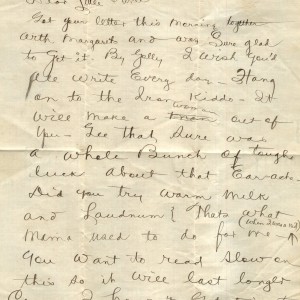 Got your letter this morning together
with Margarets and was Sure glad
to Got it. By Golly I wish you'd
all write Every day - Hang
on to the Iron Kiddo - It
will make a woman out of
you - Gee that Sure was
a whole Bunch of tough
luck about that Ear-ach -
Did you try warm Milk
and Laudnum { Thats what
Mama used to do for me
You want to read Slow on
this so it will last longer